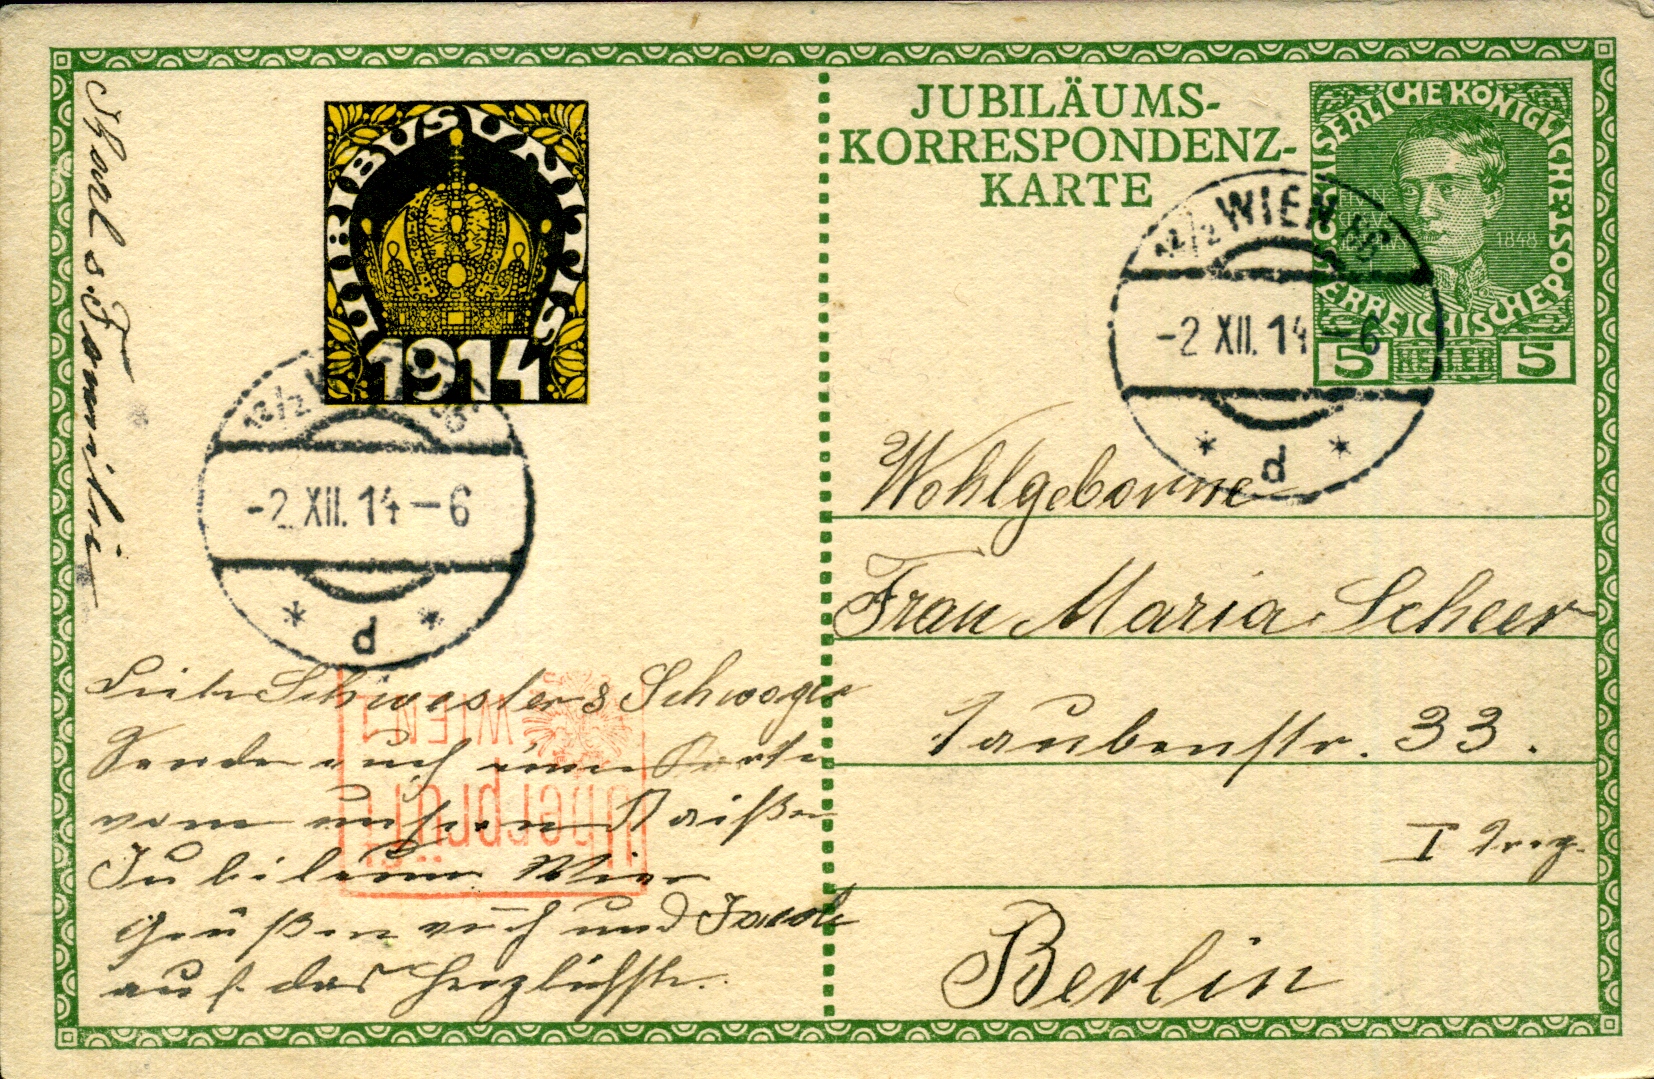 JUBILÄUMS-
KORRESPONDENZ-
KARTE
KAISERLICHE KÖNIGLICHE ÖSTERREICHISCHE POST
1848
5 HELLER 5
12/2 WIEN
-2 XII. 14-6
* d *
VIRIBUS VNITIS
1914
12/2 W
-2 XII. 14-6
* d *
Wohlgeborne
Frau Maria Scheer
Taubenstr. 33.
I
Berlin
Liebe Schwester & Schwager
Sende euch eine Karte
vom unsern Kaißer
Jubileum Wir
Grüßen euch und
auf das Herzlichste.
s. Familie
Überprüft
WIEN 1